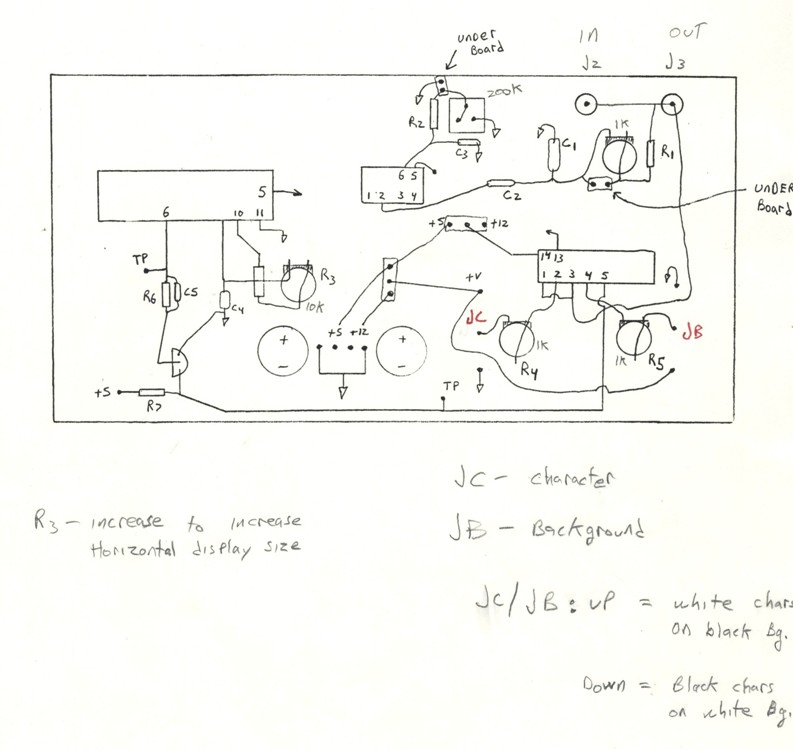 under
Board
IN
OUT
J2
J3
200K
R2
C3
C1
1K
R1
6 5
1 2 3 4
C2
UNDER
Board
5
6
10
11
+5
+12
14 13
1 2 3 4 5
TP
R6
C5
C4
R3
10K
+V
JC
JB
+5 +12
+
+
−
−
1K
R4
1K
R5
TP
+5
R7
JC - character
R3 - increase to increase
Horizontal display size
JB - Background
JC/JB : UP = white chars
on black Bg.
Down = Black chars
on white Bg.